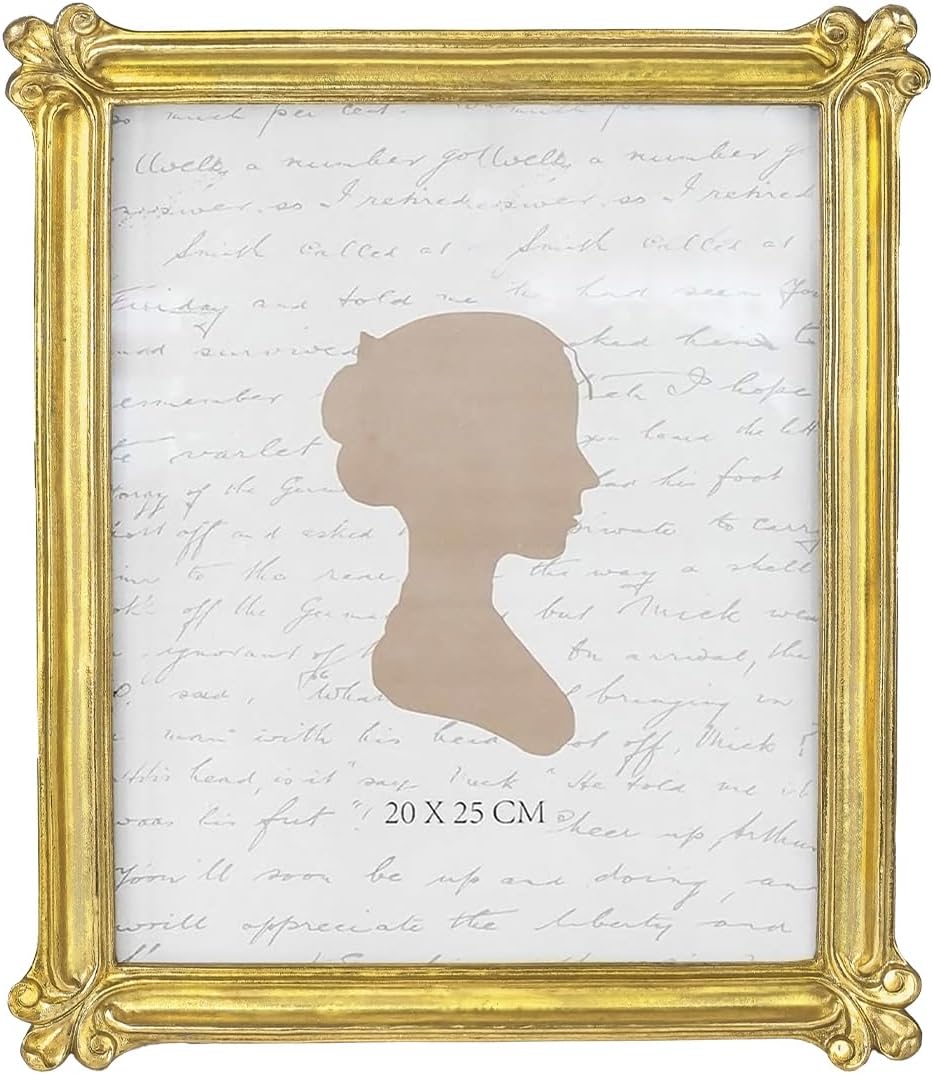 much per cent.
Well, a number go Well, a number g
so I retired so I retired
Smith called at Smith called at
Friday and told me he had seen You
had survived ked him to
emember I hope
varlet you found the lett
of the Germ had his foot
off and asked private to carry
to the rear the way a shell
off the Germa but Mick wea
ignorant of On arrival, the
said, What bringing in
man" with his head ot off, Mick ?
His head, is it" say Tuck "He told me it
was his feet"! Cheer up, Arthur
20 X 25 CM
You'll soon be up and doing, an
will appreciate the liberty and